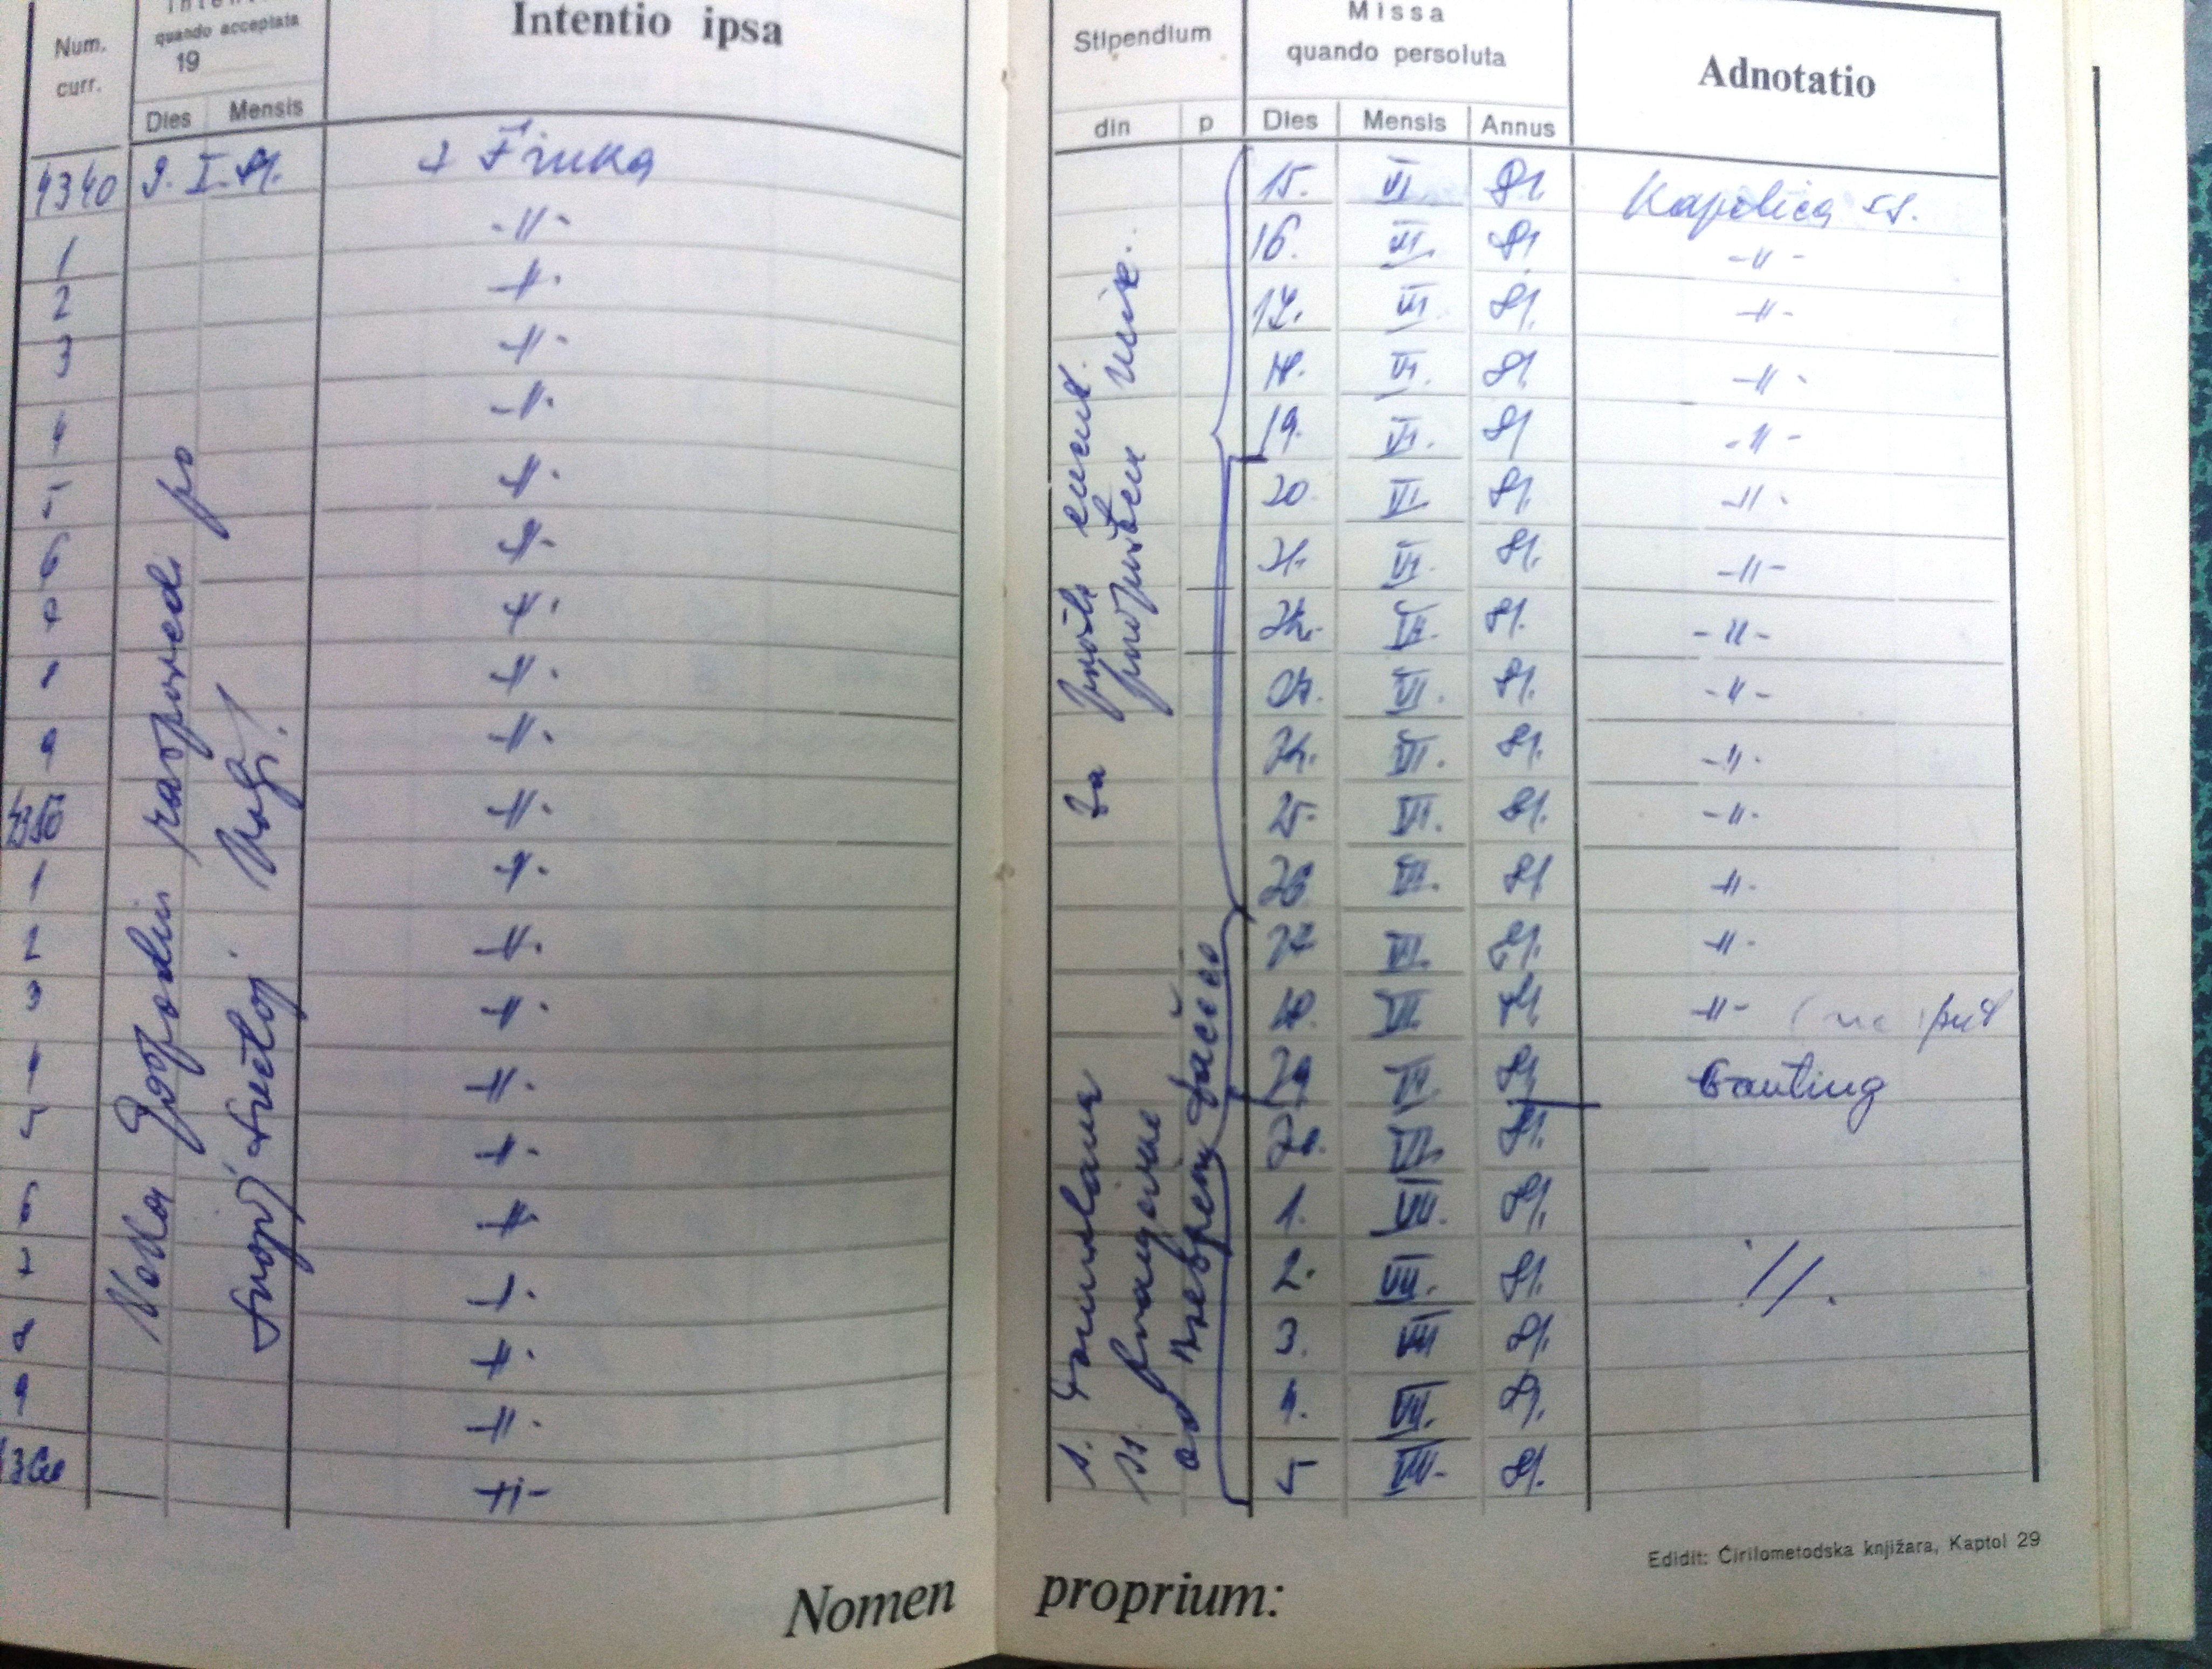 Num. curr.
quando acceptata
19
Dies Mensis
Intentio ipsa
Stipendium
din p
Missa
quando persoluta
Dies Mensis Annus
Adnotatio
4340 9. I. 81. + Finka 15. VI. 81. Kapelica ss.
1 -||- 16. VI. 81 -||-
2 -||- 17. VI. 81. -||-
3 -||- 18. VI. 81. -||-
4 -||- 19. VI. 81 -||-
5 -||- 20. VI. 81. -||-
6 -||- 21. VI. 81. -||-
7 -||- 22. VI. 81. -||-
8 -||- 23. VI. 81. -||-
9 -||- 24. VI. 81. -||-
4350 -||- 25. VI. 81. -||-
1 -||- 26 VI. 81 -||-
2 -||- 27 VI. 81. -||-
3 -||- 28 VI. 81. -||- (na put
4 -||- 29 VI. 81 Gauting
5 -||- VI. 81.
6 -||- 1. VII. 81.
7 -||- 2. VII. 81. //.
8 -||- 3. VII 81.
9 -||- 4. VII. 81.
4360 -||- 5 VII. 81.
Neka Gospodin rasporedi po
svojoj svetoj
Za
Edidit: Ćirilometodska knjižara, Kaptol 29
Nomen proprium: